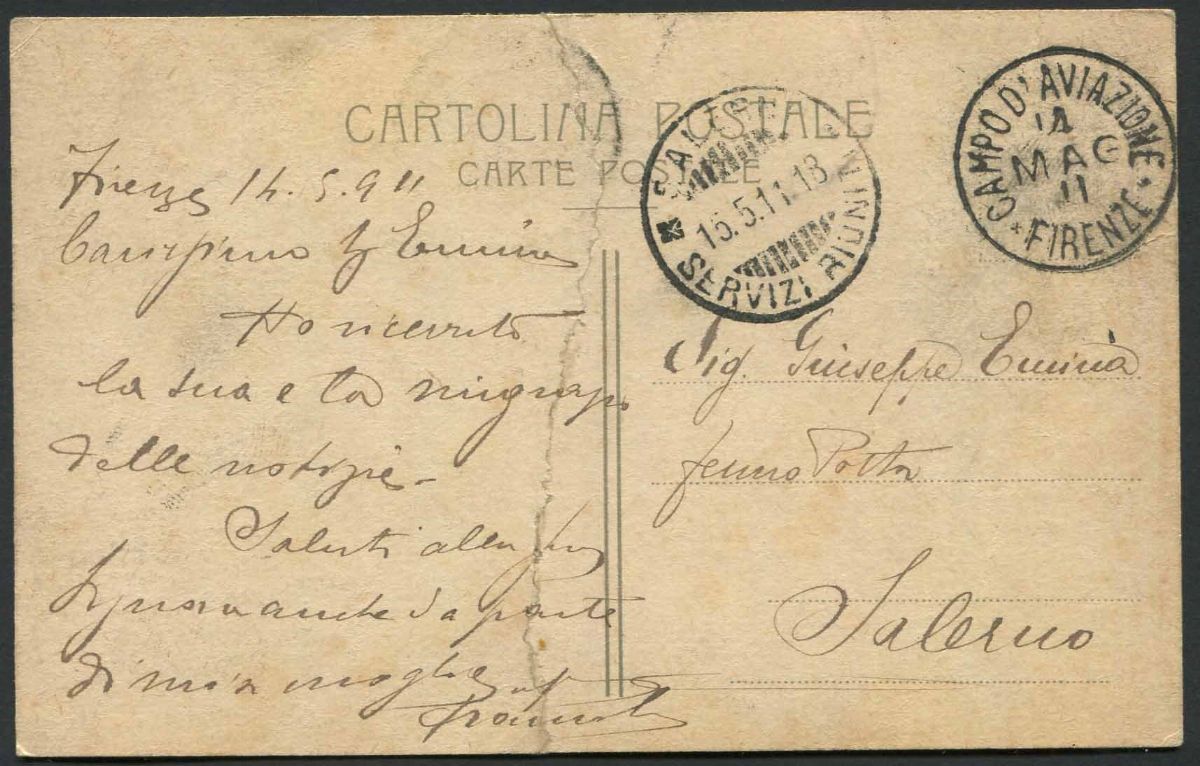 CARTOLINA POSTALE
CARTE POSTALE
Firenze 14.5.911
Carissimo Emina
Ho ricevuto
la sua e la ringrazio
delle notizie -
Saluti alla sua
Signora anche da parte
di mia moglie
SERVIZI RIUNITI
15.5.11.18
CAMPO D'AVIAZIONE
14
MAG
11
* FIRENZE *
Sig. Giuseppe Emina
fermo Posta
Salerno